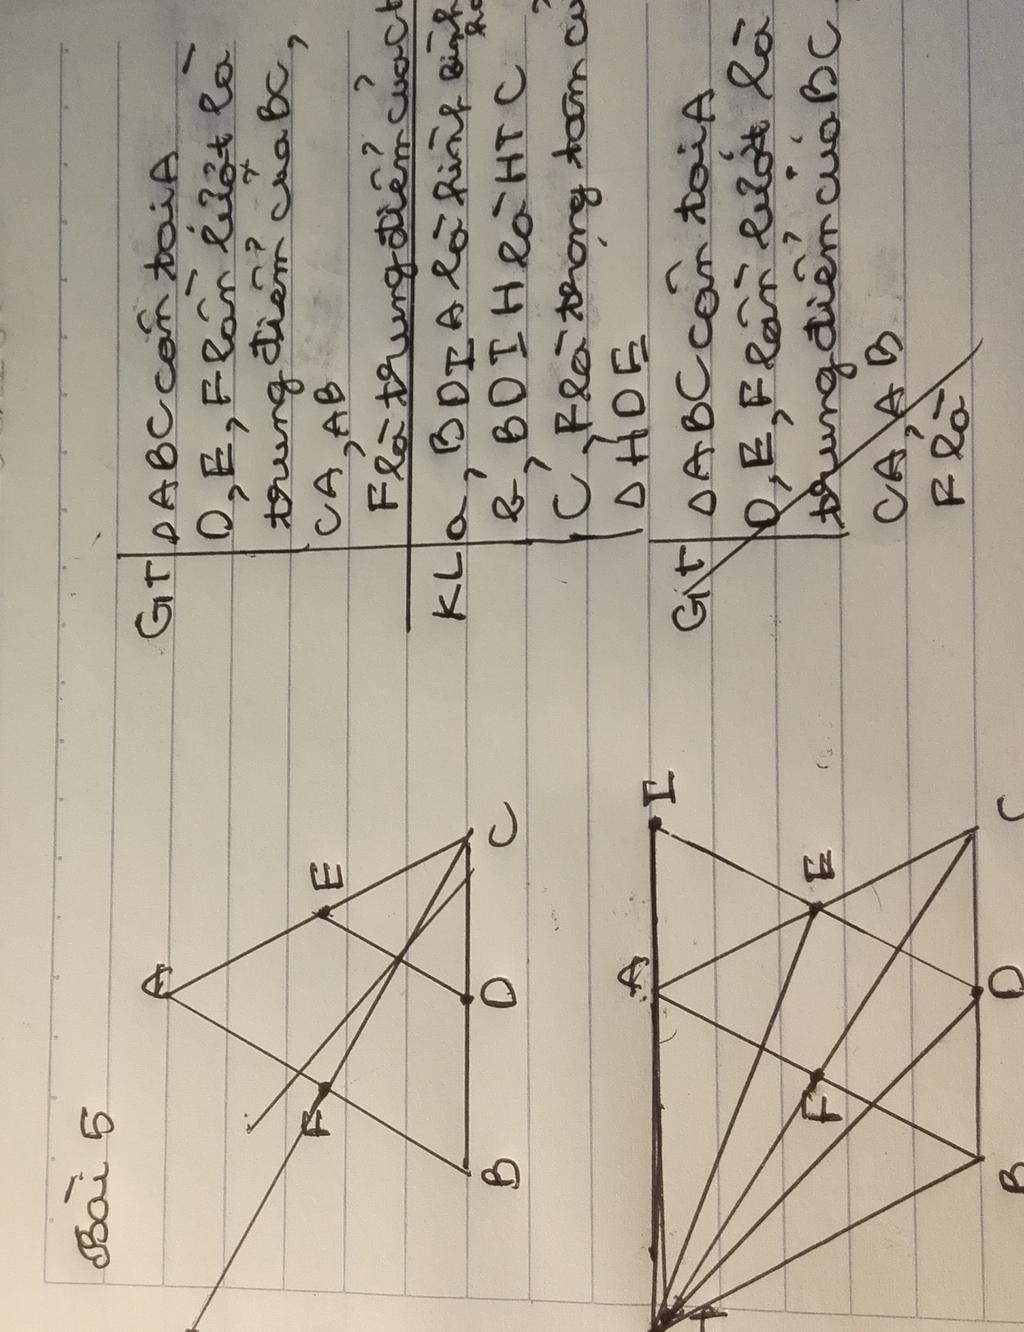 Bài 5
A
F
E
B
D
C
GT ΔABC cân tại A
D, E, F lần lượt là
trung điểm của BC,
CA, AB
F là trung điểm của
KL a, BDIA là hình bình
b, BDIH là HTC
C, F là trọng tâm
ΔHDE
A
I
F
E
B
D
C
GiT ΔABC cân tại A
D, E, F lần lượt là
trung điểm của BC
CA, AB
F là